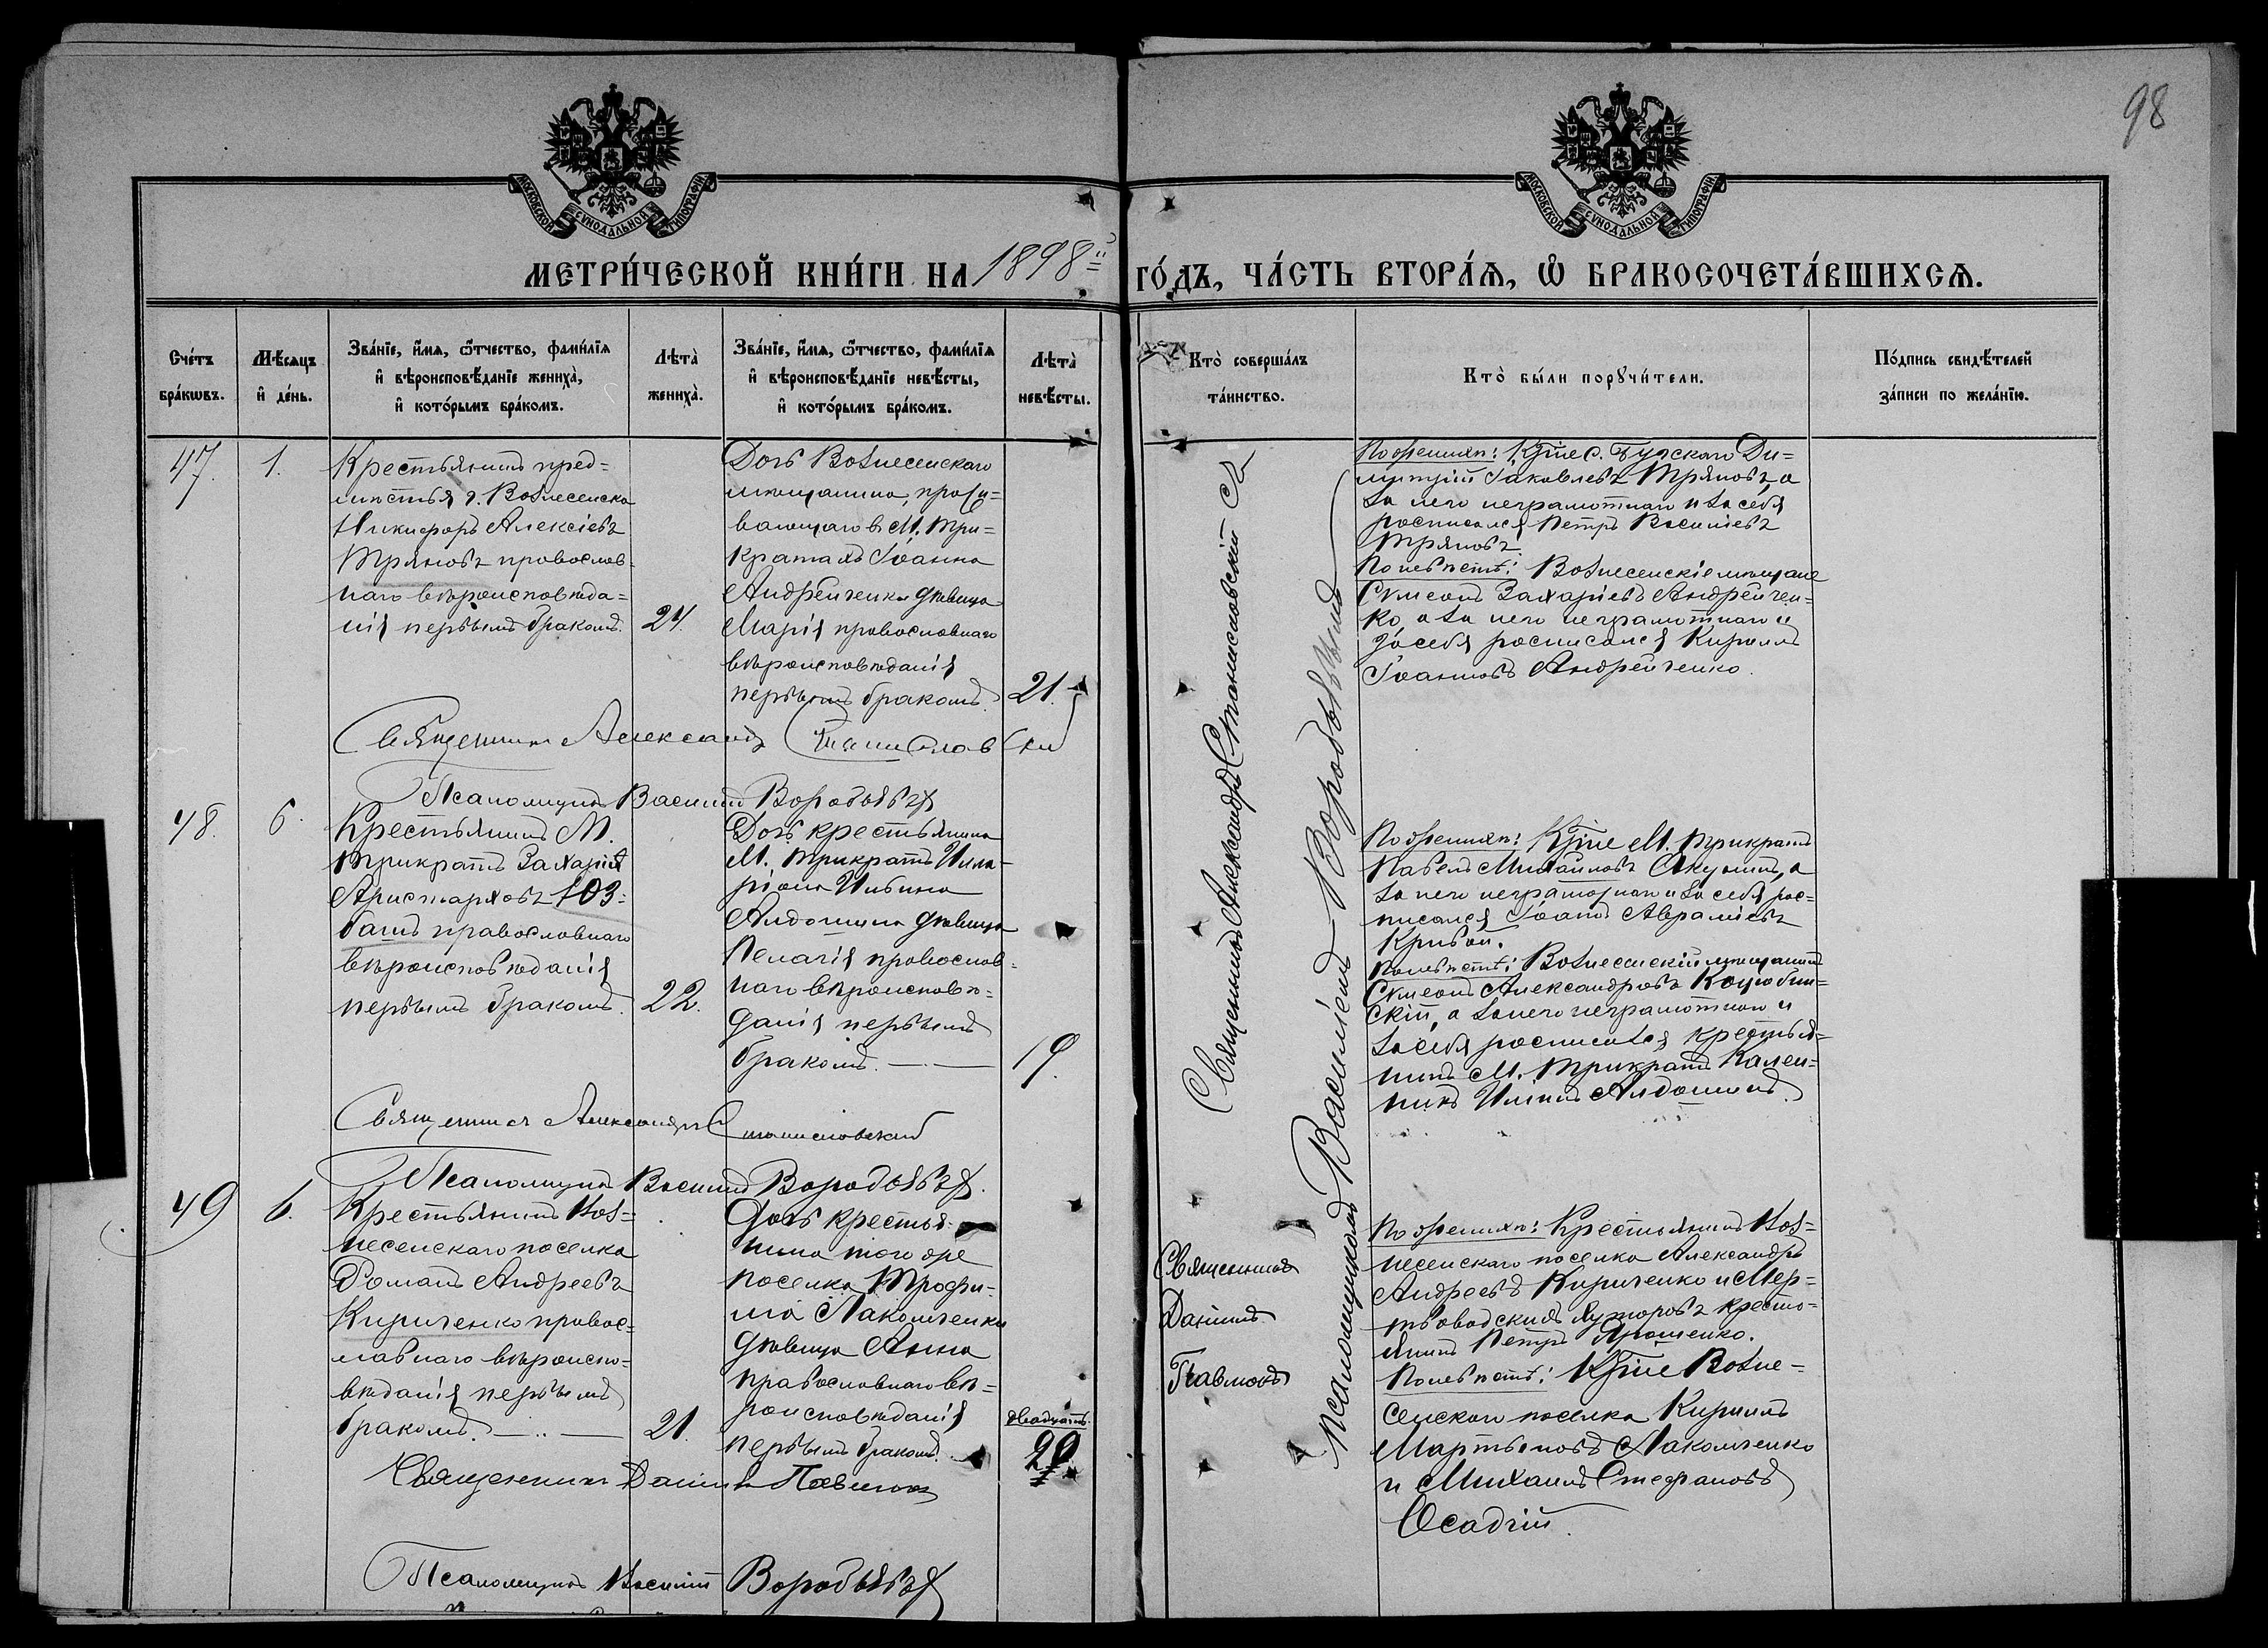 98
МОСКОВСКОЙ СУНОДАЛЬНОЙ ТИПОГРАФІИ
МОСКОВСКОЙ СУНОДАЛЬНОЙ ТИПОГРАФІИ
МЕТРИ́ЧЕСКОЙ КНИ́ГИ НА 1898й ГО́ДЪ, ЧА́СТЬ ВТОРА́Ѧ, Ѽ БРАКОСОЧЕТА́ВШИХСѦ.
Сче́тъ
бра́кѡвъ.
Мѣ́сяцъ
и҆ де́нь.
Зва́нїе, и҆́мѧ, ѻ҆́тчество, фами́лїѧ
и҆ вѣроисповѣ́данїе жениха̀,
и҆ кото́рымъ бра́комъ.
Лѣта̀
жениха̀.
Зва́нїе, и҆́мѧ, ѻ҆́тчество, фами́лїѧ
и҆ вѣроисповѣ́данїе невѣ́сты,
и҆ кото́рымъ бра́комъ.
Лѣта̀
невѣ́сты.
Кто̀ соверша́лъ
та́инство.
Кто̀ бы́ли порꙋчи́тели.
По́дпись свидѣ́телей
за́писи по жела́нїю.
47.
1.
Крестьянинъ пред=
мѣстья г. Вознесенска
Никифоръ Алексіевъ
Тряновъ православ=
наго вѣроисповѣда=
нія первымъ бракомъ.
24.
Дочь Вознесенскаго
мѣщанина, прожи=
вающаго в М. Три=
кратахъ Іоанна
Андрейченка дѣвица
Марія православнаго
вѣроисповѣданія
первымъ бракомъ.
21.
Священникъ Александръ Станиславскій
Псаломщикъ Василій Воробьевъ
По женихѣ: Кр̃не с. Бугскаго Ди=
митрій Іаковлевъ Тряновъ, а
за него неграмотнаго и за себя
росписался Петръ Василіевъ
Тряновъ.
По невѣстѣ: Вознесенскіе мѣщане
Симеонъ Захаріевъ Андрейчен=
ко, а за него неграмотнаго и
за себя росписался Кириллъ
Іоанновъ Андрейченко.
Священникъ Александръ Станиславскій
Псаломщикъ Василій Воробьевъ
48.
6.
Крестьянинъ М.
Трикратъ Захарій
Аристарховъ Юз=
башъ православнаго
вѣроисповѣданія
первымъ бракомъ.
22.
Дочь крестьянина
М. Трикратъ Илла=
ріона Ильина
Алдошина дѣвица
Пелагія православ=
наго вѣроисповѣ=
данія первымъ
бракомъ.
19.
Священникъ Александръ Станиславскій
Псаломщикъ Василій Воробьевъ
По женихѣ: Кр̃не М. Трикратъ
Павелъ Михайловъ Окунинъ, а
за него неграмотнаго и за себя рос=
писался Іоаннъ Авраміевъ
Кривой.
По невѣстѣ: Вознесенскій мѣщанинъ
Симеонъ Александровъ Коцюбин=
скій, а за него неграмотнаго и
за себя росписался крестья=
нинъ М. Трикратъ Калин=
никъ Ильинъ Алдошинъ.
49
6.
Крестьянинъ Воз=
несенскаго поселка
Романъ Андреевъ
Кириченко правос=
лавнаго вѣроиспо=
вѣданія первымъ
бракомъ.
21.
Дочь крестья=
нина того же
поселка Трофи=
ма Лакомченки
дѣвица Анна
православнаго вѣ=
роисповѣданія
первымъ бракомъ.
двадцать.
20
Священникъ Даніилъ Павловъ
Псаломщикъ Василій Воробьевъ
Священникъ
Даніилъ
Павловъ
По женихѣ: Крестьянинъ Воз=
несенскаго поселка Александръ
Андреевъ Кириченко и Мер=
твоводскихъ хуторовъ кресть=
янинъ Петръ Ярошенко.
По невѣстѣ: Кр̃не Возне=
сенскаго поселка Кириллъ
Мартыновъ Лакомченко
и Михаилъ Стефановъ
Осадчій.